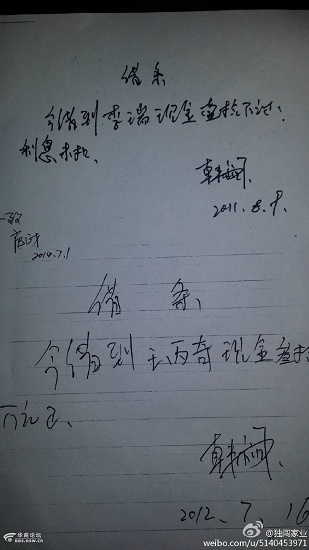 借条
今借到李瑞现金叁拾万元
利息未扣、
2011.8.9.
2014.7.1
借条、
今借到王丙奇现金叁拾
万元正、
2012、7、16
华商论坛
bbs.hsw.cn
@独阔家业
weibo.com/u/5140453971